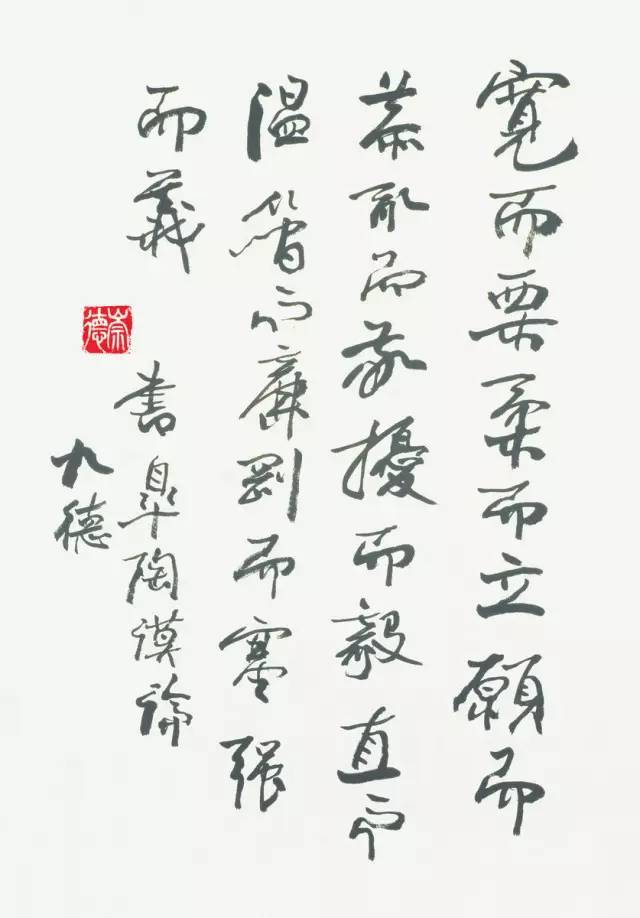 寬而栗柔而立願而
恭亂而敬擾而毅直而
溫簡而廉剛而塞强
而義
書臯陶謨論
九德
崇德